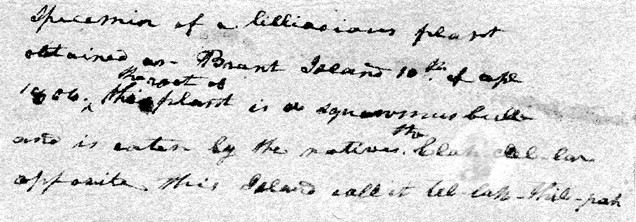 Specimin of a lilliacious plant
obtained on Brant Island 10th. of apl
1806. the root of this plant is a squawmus bulb
and is eaten by the natives. the Clah-clel-lar
opposite this Island call it tel-lak-thil-pah